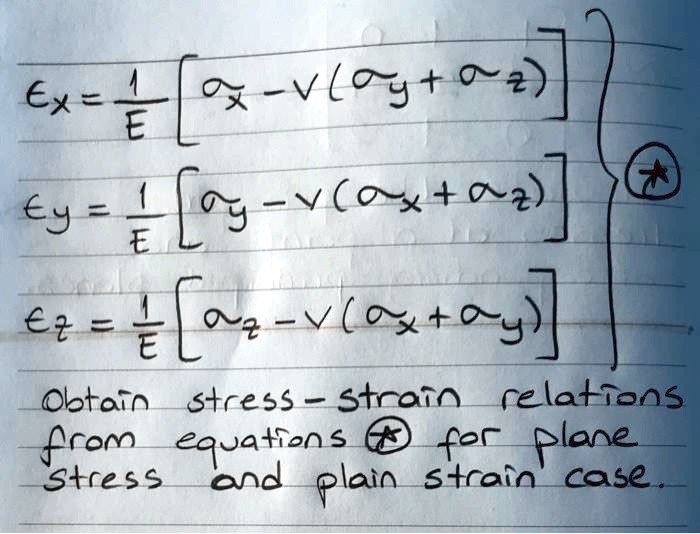 εx = 1/E [σx - ν(σy + σz)]
εy = 1/E [σy - ν(σx + σz)]
εz = 1/E [σz - ν(σx + σy)]
Obtain stress - strain relations
from equations ⍟ for plane
stress and plain strain case.